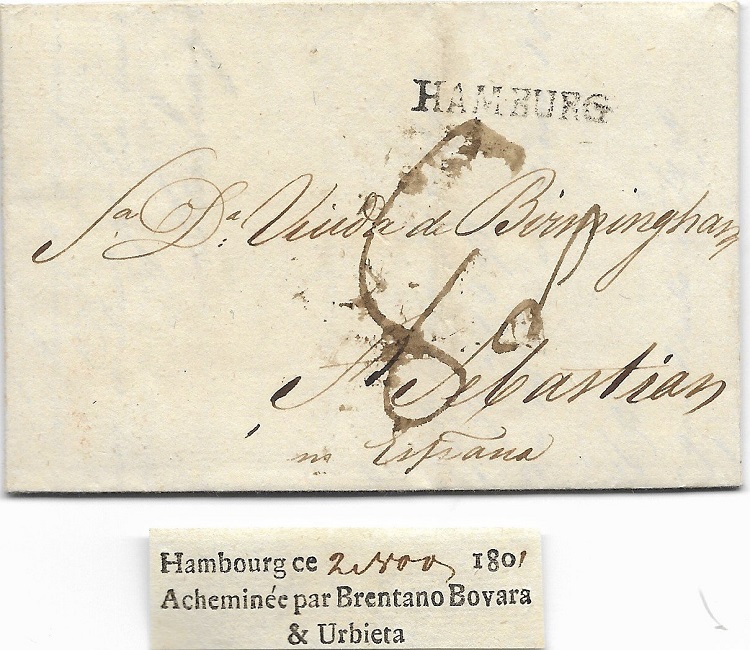 HAMBURG
Sa. Da. Viuda de Birmingham
St Sebastian
en España
Hambourg ce 2 Nov 1801
Acheminée par Brentano Bovara
& Urbieta